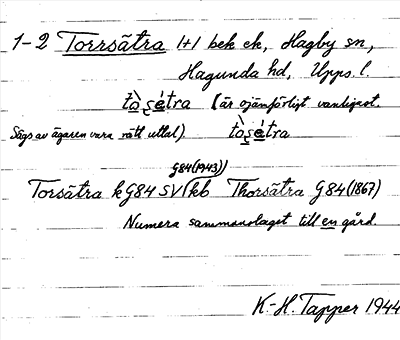 1-2 Torrsätra 1+1 bek ek, Hagby sn,
Hagunda hd, Upps. l.
tò̱ṣé̱tra (är ojämförligt vanligast.
Sägs av ägaren vara rätt uttal). tòṣé̱tra
G84(1943))
Torsätra kG84 SV (kb Thorsätra G84 (1867)
Numera sammanslaget till en gård.
K.-H. Tapper 1944